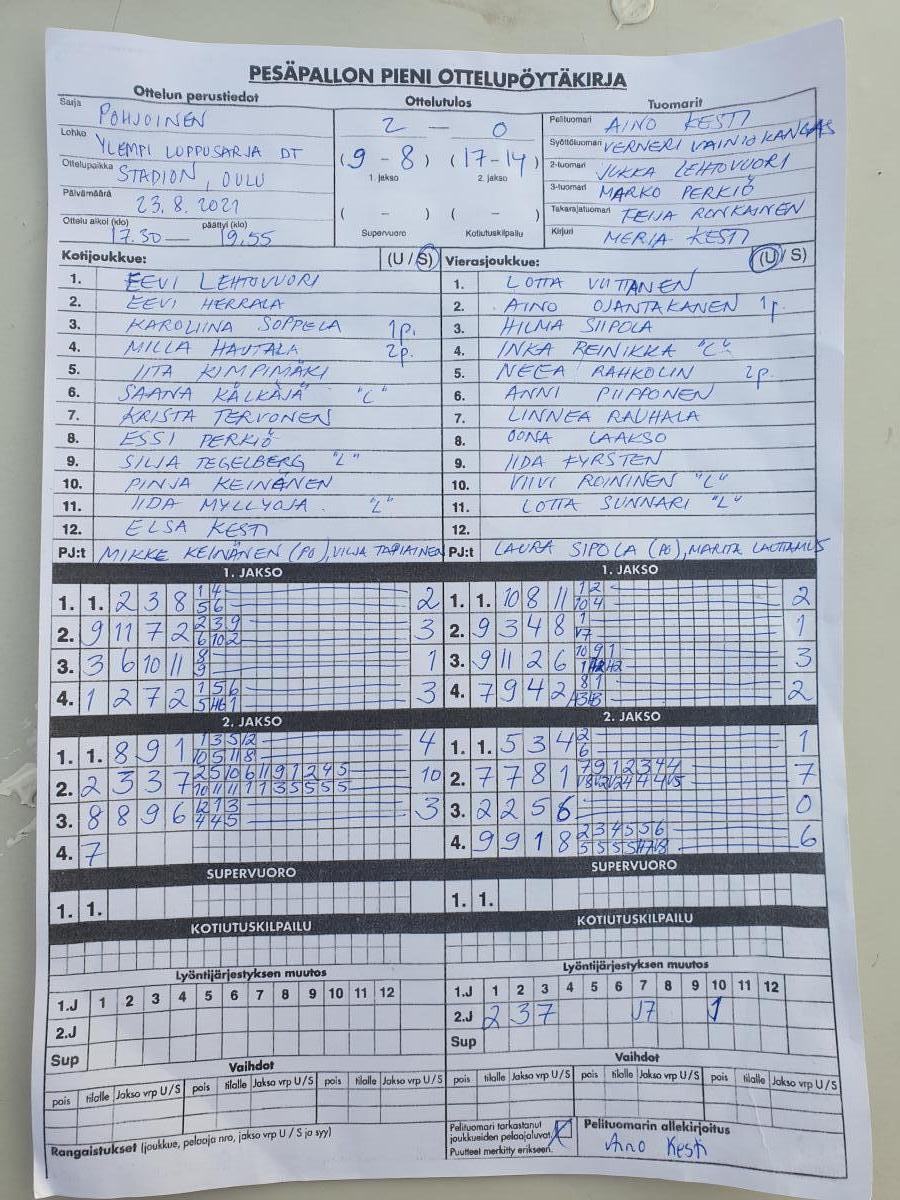 PESÄPALLON PIENI OTTELUPÖYTÄKIRJA
Ottelun perustiedot
Ottelutulos
Tuomarit
Sarja POHJOINEN
Lohko YLEMPI LOPPUSARJA DT
Ottelupaikka STADION, OULU
Päivämäärä 23.8.2021
Ottelu alkoi (klo) päättyi (klo)
17.30 — 19.55
2 — 0
(9 - 8) (17-14)
1. jakso 2. jakso
( - ) ( - )
Supervuoro Kotiutuskilpailu
Pelituomari AINO KESTI
Syöttötuomari VERNERI VAINIOKANGAS
2-tuomari JUKKA LEHTOVUORI
3-tuomari MARKO PERKIÖ
Takarajatuomari TEIJA RONKAINEN
Kirjuri MERJA KESTI
Kotijoukkue: (U / S)
1. EEVI LEHTOVUORI
2. EEVI HERRALA
3. KAROLIINA SOPPELA 1p.
4. MILLA HAUTALA 2p.
5. IITA KIMPIMÄKI
6. SAANA KÄLKÄJÄ "C"
7. KRISTA TERVONEN
8. ESSI PERKIÖ
9. SILJA TEGELBERG "L"
10. PINJA KEINÄNEN
11. IIDA MYLLYOJA "L"
12. ELSA KESTI
PJ:t MIKKE KEINÄNEN (PO), VILJA TAPIAINEN
Vierasjoukkue: (U / S)
1. LOTTA VIITANEN
2. AINO OJANTAKANEN 1p.
3. HILMA SIIPOLA
4. INKA REINIKKA "C"
5. NEEA RAHKOLIN 2p.
6. ANNI PIIPPONEN
7. LINNEA RAUHALA
8. OONA LAAKSO
9. IIDA FYRSTEN
10. VIIVI ROININEN "L"
11. LOTTA SUNNARI "L"
12.
PJ:t LAURA SIPOLA (PO), MARITA LAUTTAMUS
1. JAKSO
1. 1. 2 3 8 1 4 2
5 6
2. 9 11 7 2 2 3 9 3
6 10 2
3. 3 6 10 11 8 1
9
4. 1 2 7 2 1 5 6 3
1. JAKSO
1. 1. 10 8 11 1 2 2
10 4
2. 9 3 4 8 1 1
3. 9 11 2 6 10 9 1 3
4. 7 9 4 2 8 1 2
2. JAKSO
1. 1. 8 9 1 1 3 5 12 4
10 5 11 8
2. 2 3 3 7 2 5 10 6 11 9 1 2 4 5 10
10 11 11 1 1 3 5 5 5 5
3. 8 8 9 6 12 1 3 3
4 4 5
4. 7
2. JAKSO
1. 1. 5 3 4 2 1
6
2. 7 7 8 1 7 9 1 2 3 4 4 7
3. 2 2 5 6 0
4. 9 9 1 8 2 3 4 5 5 6 6
SUPERVUORO
1. 1.
SUPERVUORO
1. 1.
KOTIUTUSKILPAILU
KOTIUTUSKILPAILU
Lyöntijärjestyksen muutos
1.J 1 2 3 4 5 6 7 8 9 10 11 12
2.J
Sup
Lyöntijärjestyksen muutos
1.J 1 2 3 4 5 6 7 8 9 10 11 12
2.J 2 3 7 J7 1
Sup
Vaihdot
pois tilalle Jakso vrp U/S pois tilalle Jakso vrp U/S pois tilalle Jakso vrp U/S
Vaihdot
pois tilalle Jakso vrp U/S pois tilalle Jakso vrp U/S pois tilalle Jakso vrp U/S
Rangaistukset (joukkue, pelaaja nro, jakso vrp U / S ja syy)
Pelituomari tarkastanut
joukkueiden pelaajaluvat.
Puutteet merkitty erikseen.
Pelituomarin allekirjoitus
Aino Kesti